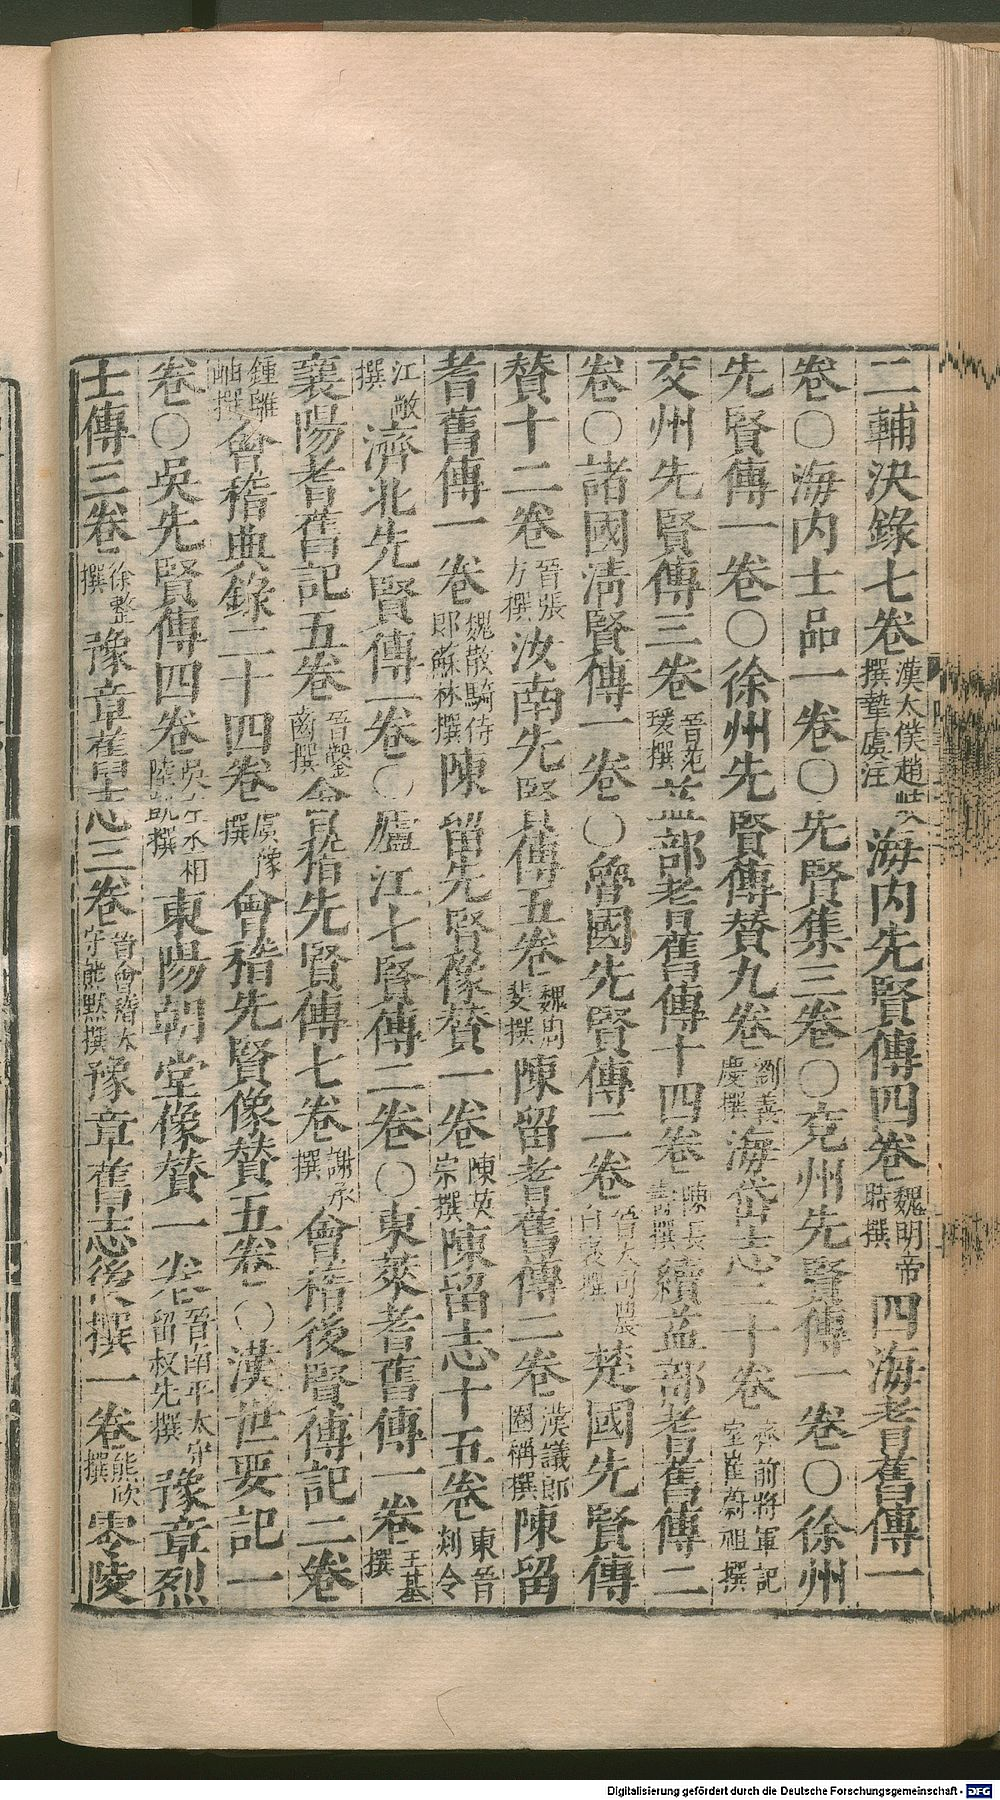 二輔決錄七卷漢太僕趙岐撰摯虞注海内先賢傳四卷魏明帝時撰四海耆舊傳一
卷〇海内士品一卷〇先賢集三卷〇兗州先賢傳一卷〇徐州
先賢傳一卷〇徐州先賢傳贊九卷劉義慶撰海岱志二十卷齊前將軍記室崔蔚祖撰
交州先賢傳三卷晉范瑗撰益部耆舊傳十四卷陳長壽撰續益部耆舊傳二
卷〇諸國清賢傳一卷〇魯國先賢傳二卷晉大司農白裒撰楚國先賢傳
賛十二卷晉張方撰汝南先賢傳五卷魏周斐撰陳留耆舊傳二卷漢議郎圈稱撰陳留
耆舊傳一卷魏散騎侍郎蘇林撰陳留先賢像賛一卷陳英宗撰陳留志十五卷東晉剡令
江敞撰濟北先賢傳一卷〇廬江七賢傳二卷〇東萊耆舊傳一卷王基撰
襄陽耆舊記五卷晉鑿齒撰會稽先賢傳七卷謝承撰會稽後賢傳記二卷
鍾離岫撰會稽典錄二十四卷虞豫撰會稽先賢像賛五卷〇漢世要記一
卷〇吳先賢傳四卷吳左丞相陸凱撰東陽朝堂像賛一卷晉南平太守留叔先撰豫章烈
士傳三卷徐整撰豫章舊志三卷晉會稽太守熊默撰豫章舊志後撰一卷熊欣撰零陵
Digitalisierung gefördert durch die Deutsche Forschungsgemeinschaft - DFG